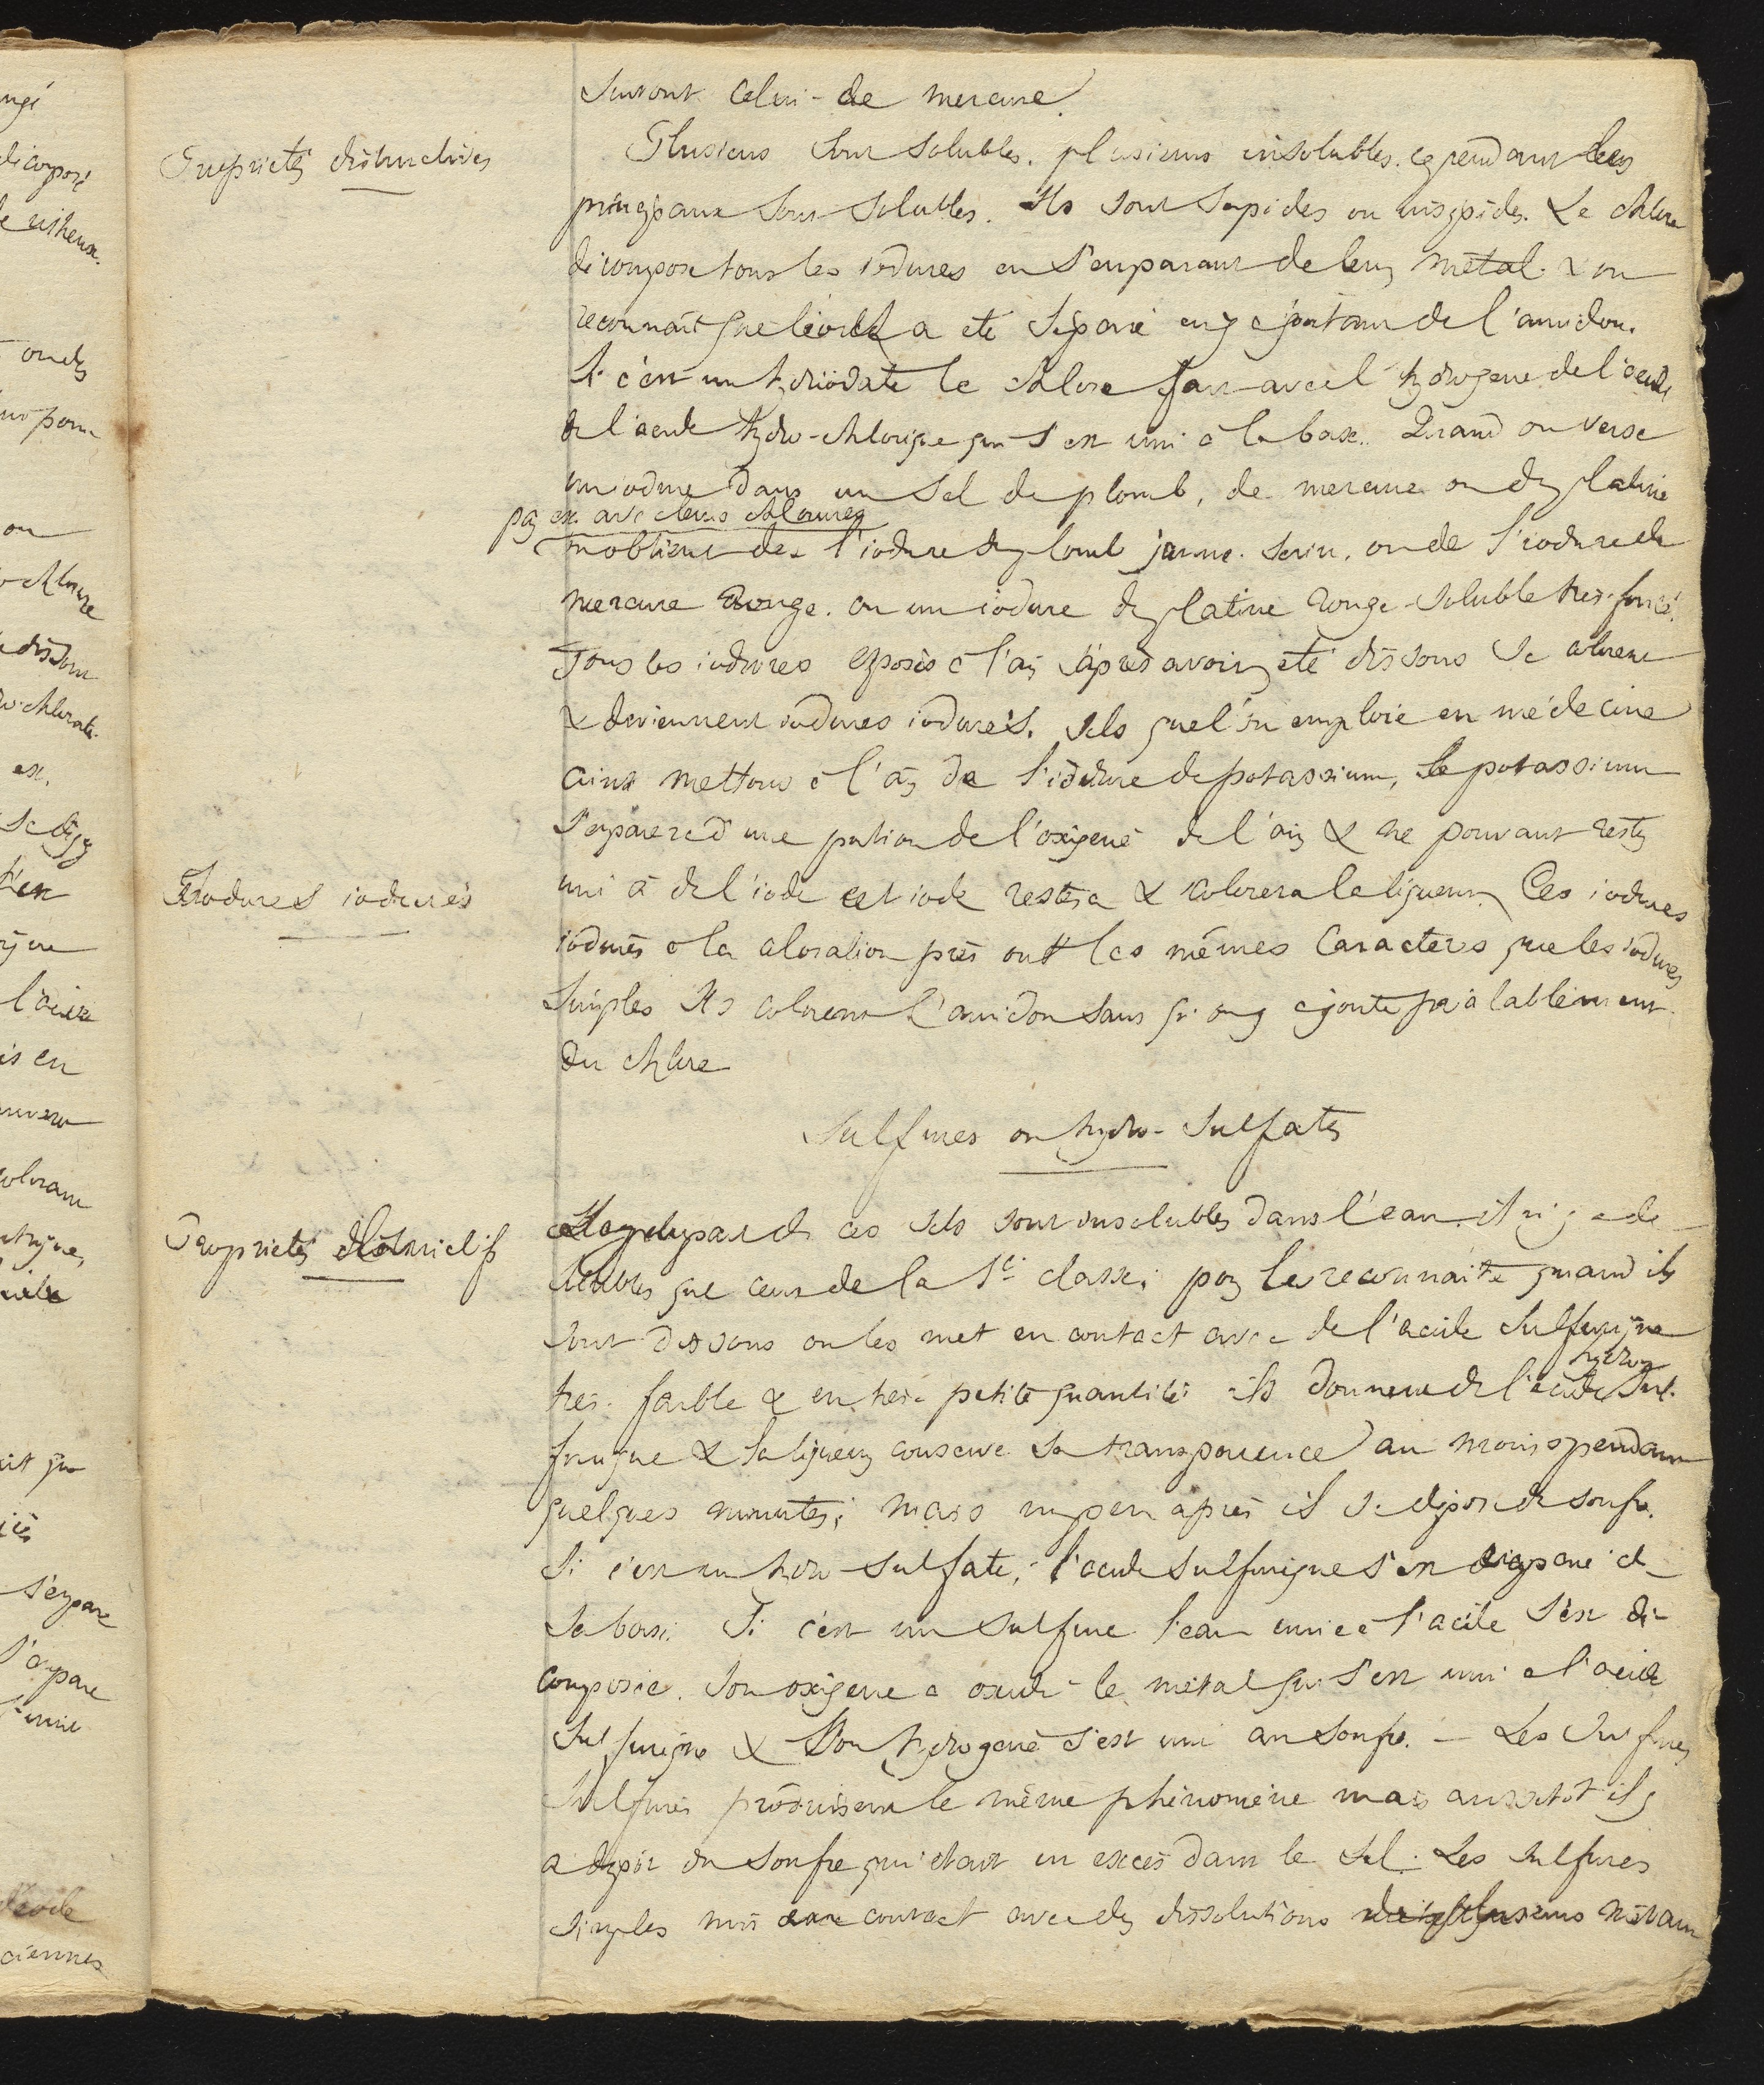 surtout celui-de mercure.
Propriétés distinctives
Plusieurs sont solubles. plusieurs insolubles. cependant les
principaux sont solubles. Ils sont sapides ou insipides. Le chlore
décompose tous les iodures en s'emparant de leur métal. & on
reconnaît que l'iode a été séparé en y ajoutant de l'amidon.
Si c'est un hydriodate le chlore fait avec l'hydrogene de l'acide
de l'acide hydro-chlorique qui s'est uni à la base. Quand on verse
un iodure dans un sel de plomb, de mercure ou de platine
par ex. avec chlorures
on obtient de l'iodure de plomb jaune. serin, ou de l'iodure de
mercure rouge. ou un iodure de platine rouge-soluble très-foncé.
Tous les iodures exposés à l'air après avoir été dissous se colorent
& deviennent iodures iodurés. Sels que l'on emploie en médecine
ainsi mettons à l'air de l'iodure de potassium, le potassium
s'empare d'une portion de l'oxigene de l'air & ne pouvant rester
Iodures iodurés
uni à de l'iode cet iode restera & colorera la liqueur. Ces iodures
iodurés à la coloration près ont les mêmes caracteres que les iodures
simples Ils colorent l'amidon sans qu'on y ajoute préalablement
du chlore
Sulfures ou hydro-sulfates
Propriétés distinctifs
La plupart de ces sels sont insolubles dans l'eau. il n'y a de
solubles que ceux de la 1e classe; pour les reconnaitre quand ils
sont dissous on les met en contact avec de l'acide sulfurique
très-faible & en très-petite quantité ils donnent de l'acide hydro sul-
furique & la liqueur conserve sa transparence au moins pendant
quelques minutes; mais un peu après il se dépose du soufre.
Si c'est un hydro-sulfate, l'acide sulfurique s'est emparé de
sa base. Si c'est un sulfure l'eau unie à l'acide s'est dé-
composée. Son oxigene a oxidé le métal qui s'est uni à l'acide
sulfurique & son hydrogene s'est uni au soufre. — Les sulfures
sulfurés produisent le même phénomène mais aussitôt il y
a dépôt du soufre qui etait en excès dans le sel. Les sulfures
simples mis en contact avec des dissolutions métall